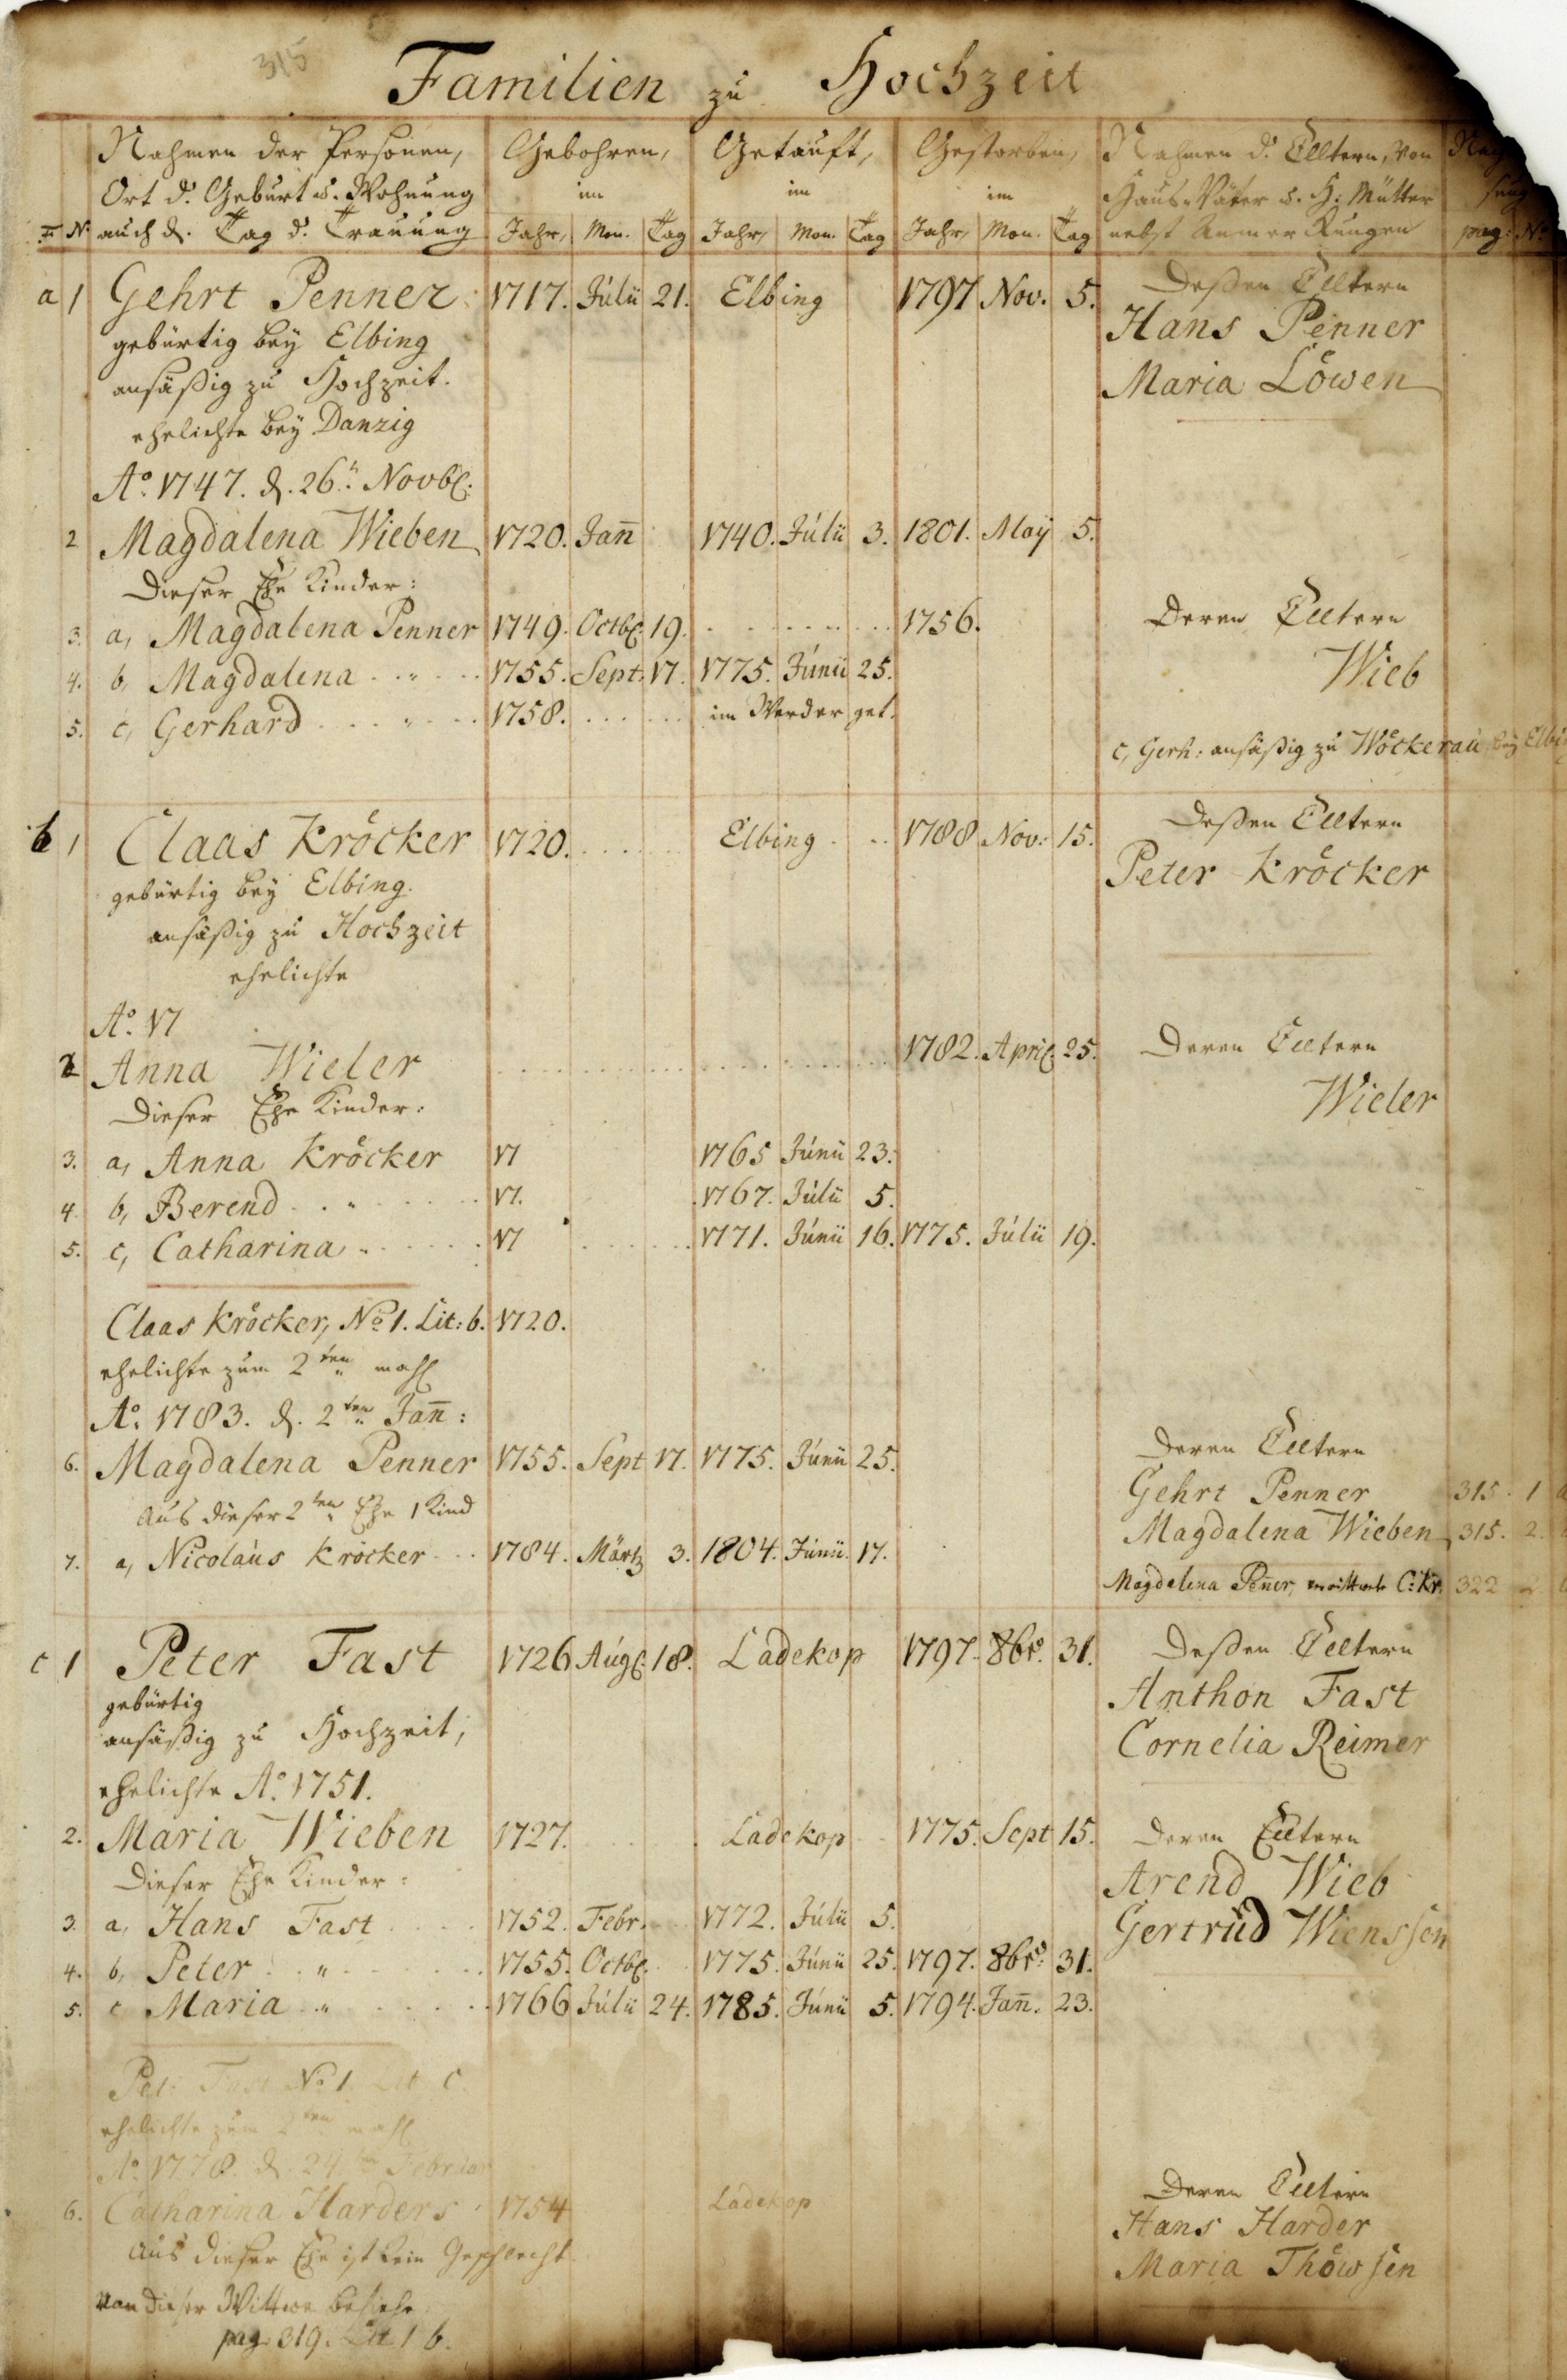 315
Familien zu Hochzeit
Nahmen der Personen, Gebohren, Getauft, Gestorben, Nahmen d. Elltern, von
Ort d. Geburt u. Wohnung im im im Haus-Väter u. H: Mütter
F N. auch d. Tag d. Trauung Jahr, Mon. Tag Jahr, Mon. Tag Jahr, Mon. Tag nebst Anmerkungen pag: No
a 1 Gehrt Penner 1717. Julii 21. Elbing 1797 Nov. 5. Deßen Elltern
gebürtig bey Elbing Hans Penner
ansäßig zu Hochzeit. Maria Löwen
ehelichte bey Danzig
Ao. 1747. d. 26n. Novbr.
2 Magdalena Wieben 1720. Jan̄ 1740. Julii 3. 1801. May 5.
Dieser Ehe Kinder:
3. a, Magdalena Penner 1749. Octbr. 19. 1756. Deren Elltern
4. b, Magdalena " 1755. Sept. 17. 1775. Junii 25. Wieb
5. c, Gerhard " 1758. im Werder get.
c, Gerh: ansäßig zu Wöckerau bey Elbi
b 1 Claas Kröcker 1720. Elbing 1788 Nov: 15. Deßen Elltern
gebürtig bey Elbing. Peter Kröcker
ansäßig zu Hochzeit
ehelichte
Ao. 17
2 Anna Wieler 1782. April 25. Deren Elltern
Dieser Ehe Kinder: Wieler
3. a, Anna Kröcker 17 1765 Junii 23.
4. b, Berend " 17. 1767. Julii 5.
5. c, Catharina 17 1771. Junii 16. 1775. Julii 19.
Claas Kröcker, No 1. Lit: b. 1720.
ehelichte zum 2ten mahl
Ao. 1783. d. 2ten Jan̄:
6. Magdalena Penner 1755. Sept 17. 1775. Junii 25. Deren Elltern
Aus dieser 2ten Ehe 1 Kind Gehrt Penner 315. 1
7. a, Nicolaus Kröcker 1784. Märtz 3. 1804. Junii. 17. Magdalena Wieben 315. 2.
Magdalena Pen̄er, C: Kr. 322 2
c 1 Peter Fast 1726 Augl. 18. Ladekop 1797. 8br. 31. Deßen Elltern
gebürtig Anthon Fast
ansäßig zu Hochzeit, Cornelia Reimer
ehelichte Ao. 1751.
2. Maria Wieben 1727. Ladekop 1775. Sept 15. Deren Elltern
Dieser Ehe Kinder: Arend Wieb
3. a, Hans Fast 1752. Febr. 1772. Julii 5. Gertrud Wienssen
4. b, Peter " 1755. Octbr. 1775. Junii 25. 1797. 8br: 31.
5. c Maria " 1766 Julii 24. 1785. Junii 5. 1794. Jan̄. 23.
Pet: Fast No 1. Lit C.
ehelichte zum 2ten mahl
Ao. 1778. d. 24ten Februar
6. Catharina Harders 1754 Ladekop Deren Elltern
Aus dieser Ehe ist kein Geschlecht. Hans Harder
Von dieser Wittwe besiehe Maria Thöwsen
pag. 319. Lit 1 b.